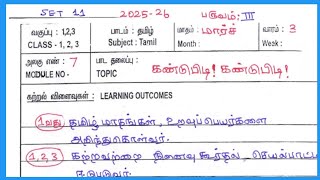 SET 11 2025-26 பருவம்: III
வகுப்பு : 1,2,3 பாடம் : தமிழ் மாதம் : மார்ச் வாரம் : 3
CLASS - 1, 2, 3 Subject : Tamil Month : Week :
அலகு எண் : 7 பாட தலைப்பு :
MODULE NO - TOPIC கண்டுபிடி! கண்டுபிடி!
கற்றல் விளைவுகள் : LEARNING OUTCOMES
1வது தமிழ் மாதங்கள், உறவுப்பெயர்களை
அறிந்துகொள்வர்.
1,2,3 கற்றவற்றை நினைவு கூர்தல்
ஈடுபடுவர்.